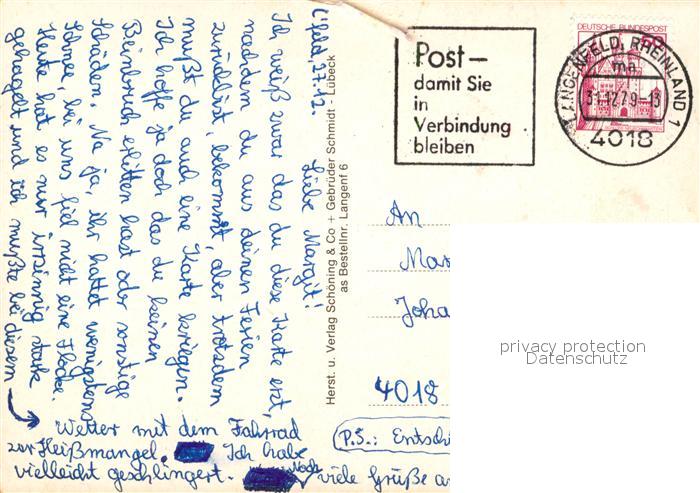 L'feld, 27.12.
Liebe Margit!
Ich weiß zwar das du diese Karte erst,
nachdem du aus deinen Ferien
zurückbist, bekommst, aber trotzdem
mußt du auch eine Karte kriegen.
Ich hoffe ja doch das du keinen
Beinbruch erlitten hast oder sonstige
Schäden. Na ja, ihr hattet wenigstens
Schnee, bei uns fiel nicht eine Flocke.
Heute hat es nur irrsinnig stark
gehagelt und ich mußte bei diesem →
Wetter mit dem Fahrrad
zur Heißmangel. Ich habe
vielleicht geschlingert. Noch viele Grüße a
(P.S.: Entsch
Herst. u. Verlag Schöning & Co + Gebrüder Schmidt - Lübeck
as Bestellnr. Langenf 6
Post –
damit Sie
in
Verbindung
bleiben
DEUTSCHE BUNDESPOST
LANGENFELD, RHEINLAND 1
ma
31.12.79-13
4018
An
Mar
Joha
4018
privacy protection
Datenschutz